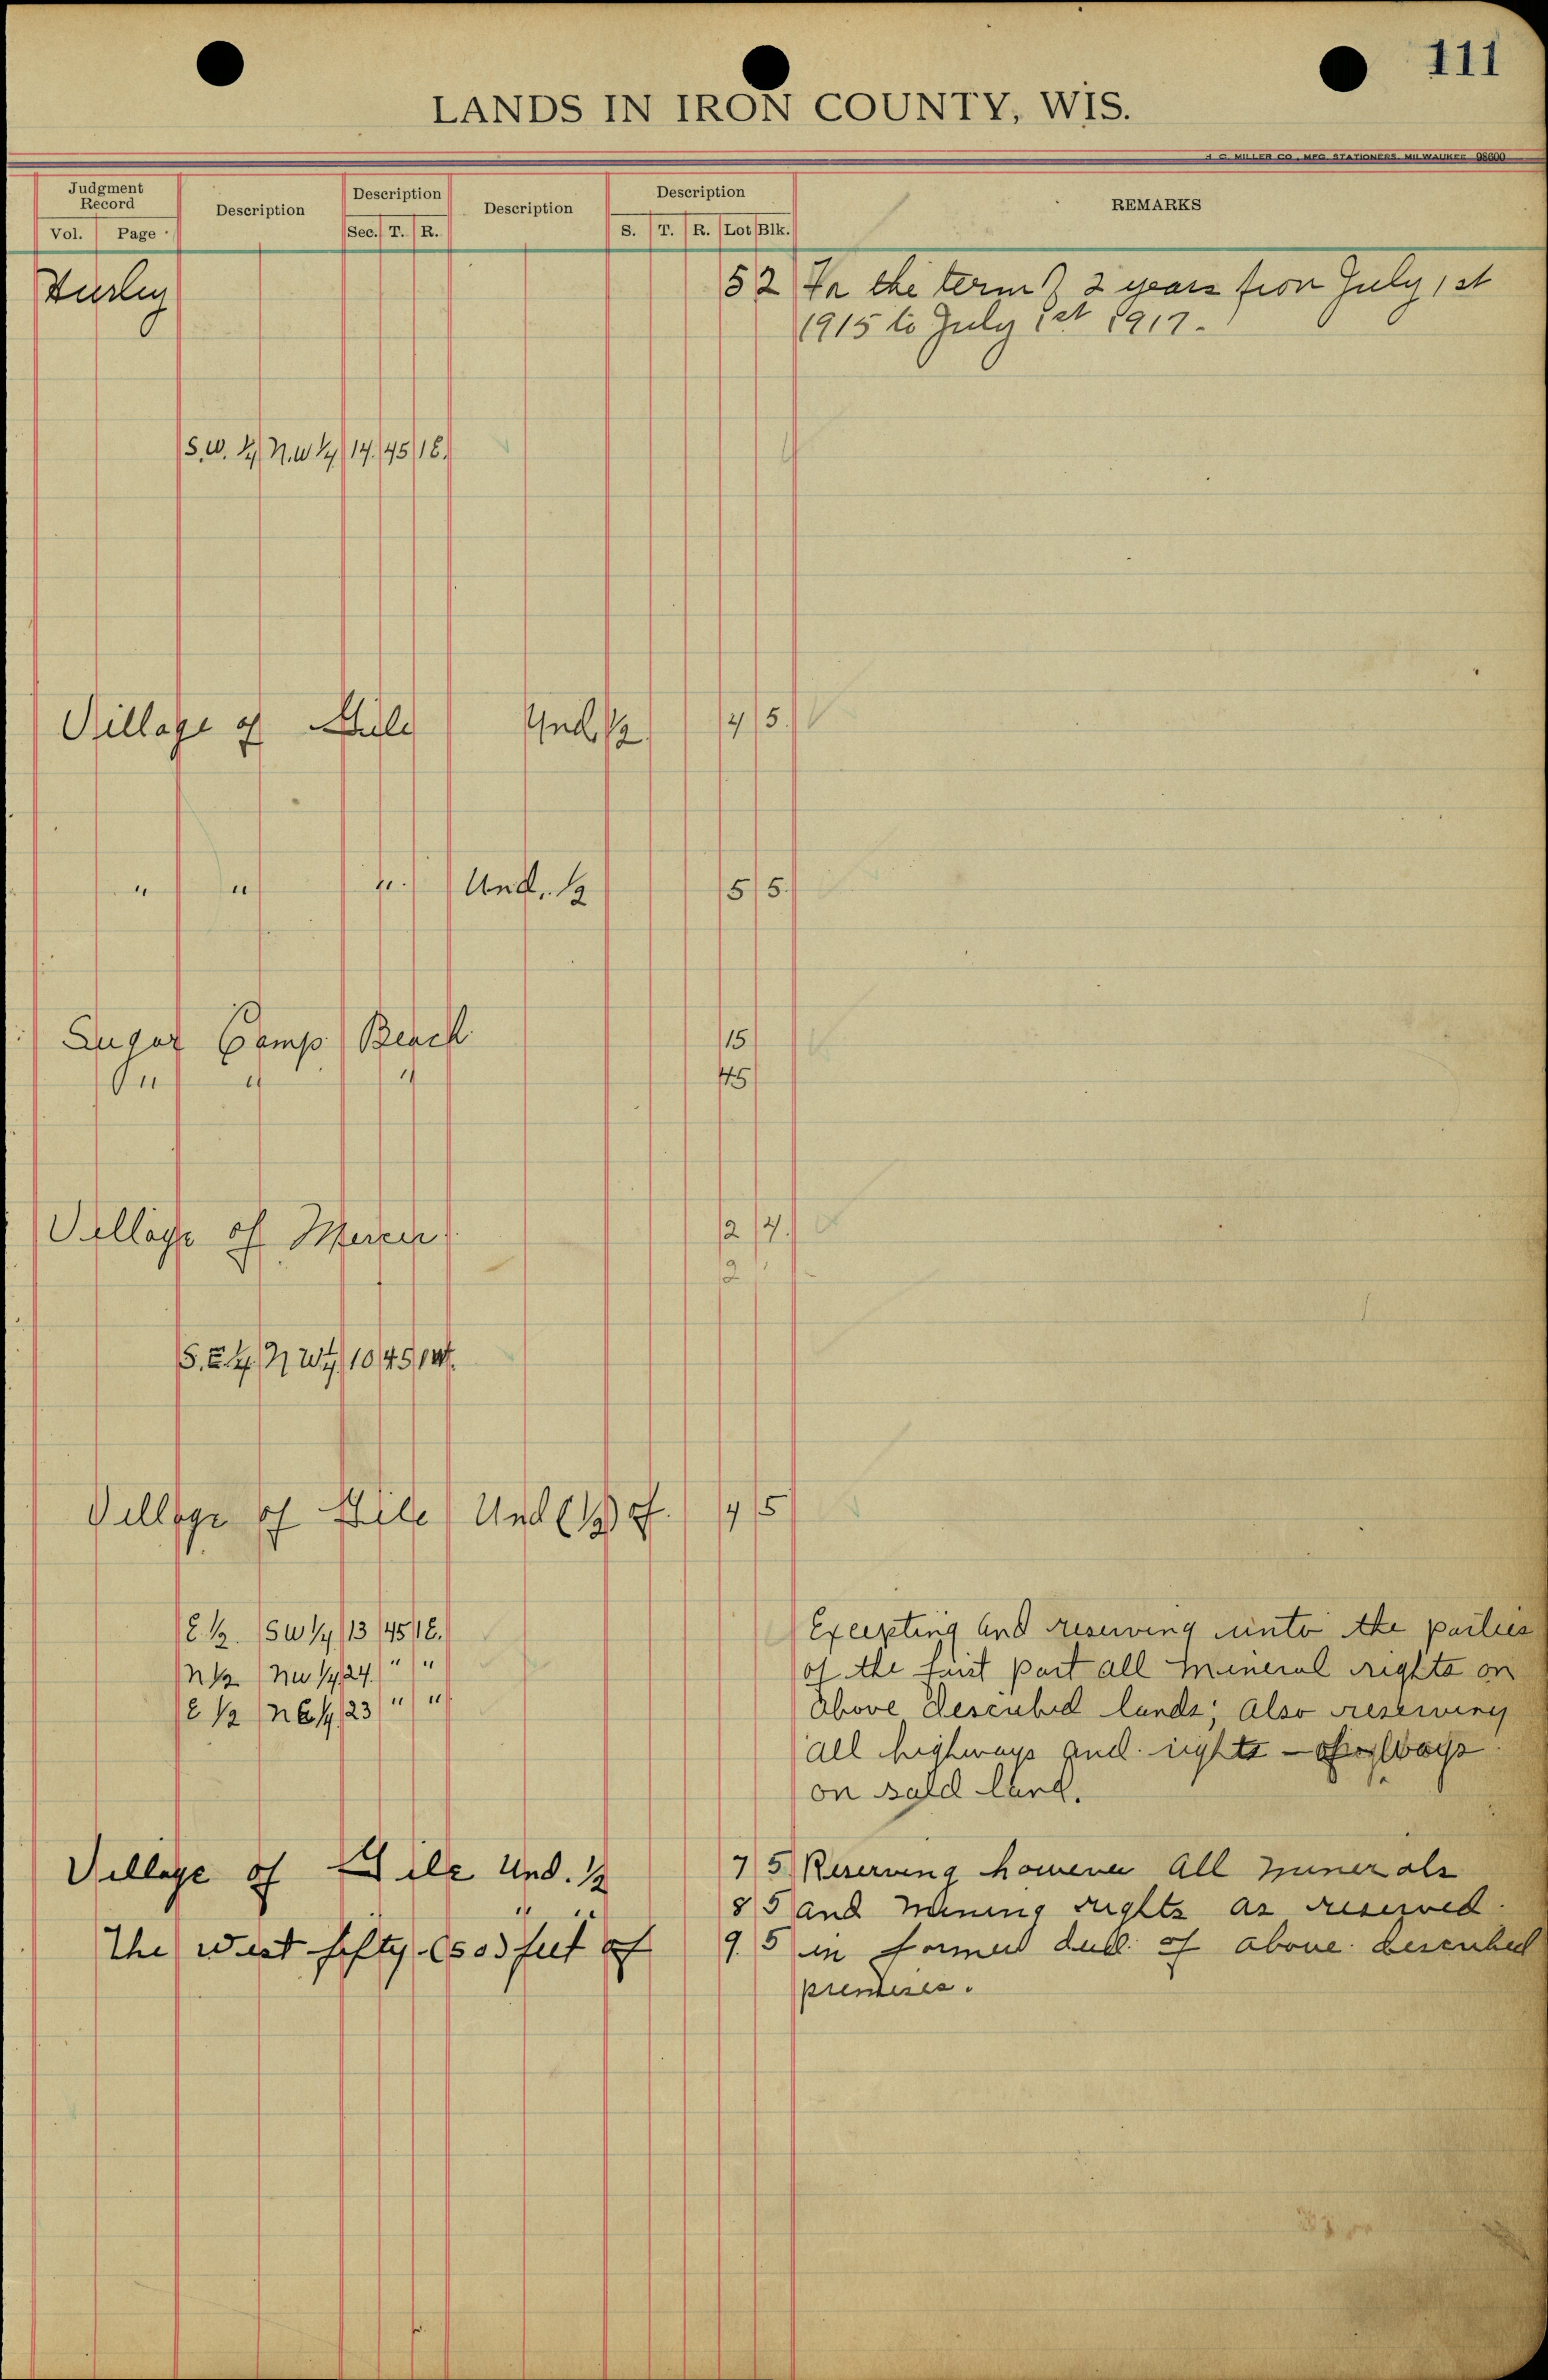 111
LANDS IN IRON COUNTY, WIS.
H. C. MILLER CO., MFG. STATIONERS, MILWAUKEE 98600
Judgment Record Description Description Description Description REMARKS
Vol. Page Sec. T. R. S. T. R. Lot Blk.
Hurley 5 2 For the term of 2 years from July 1st
1915 to July 1st 1917.
S.W. 1/4 N.W 1/4 14. 45 1E.
Village of Gile Und. 1/2 4 5.
" " ". Und. 1/2 5 5.
Sugar Camp Beach 15
" " " 45
Village of Mercer 2 4.
2 "
S.E. 1/4. N W 1/4 10 45 1W.
Village of Gile Und (1/2) of. 4 5
E. 1/2. SW 1/4 13 45 1E. Excepting and reserving unto the parties
N 1/2 NW 1/4 24. " " of the first part all mineral rights on
E 1/2 NE 1/4 23 " " above described lands; also reserving
all highways and rights - of ways
on said land.
Village of Gile Und. 1/2 7 5 Reserving however all minerals
" " 8 5 and mining rights as reserved.
The west fifty (50) feet of 9. 5 in former deed of above described
premises.